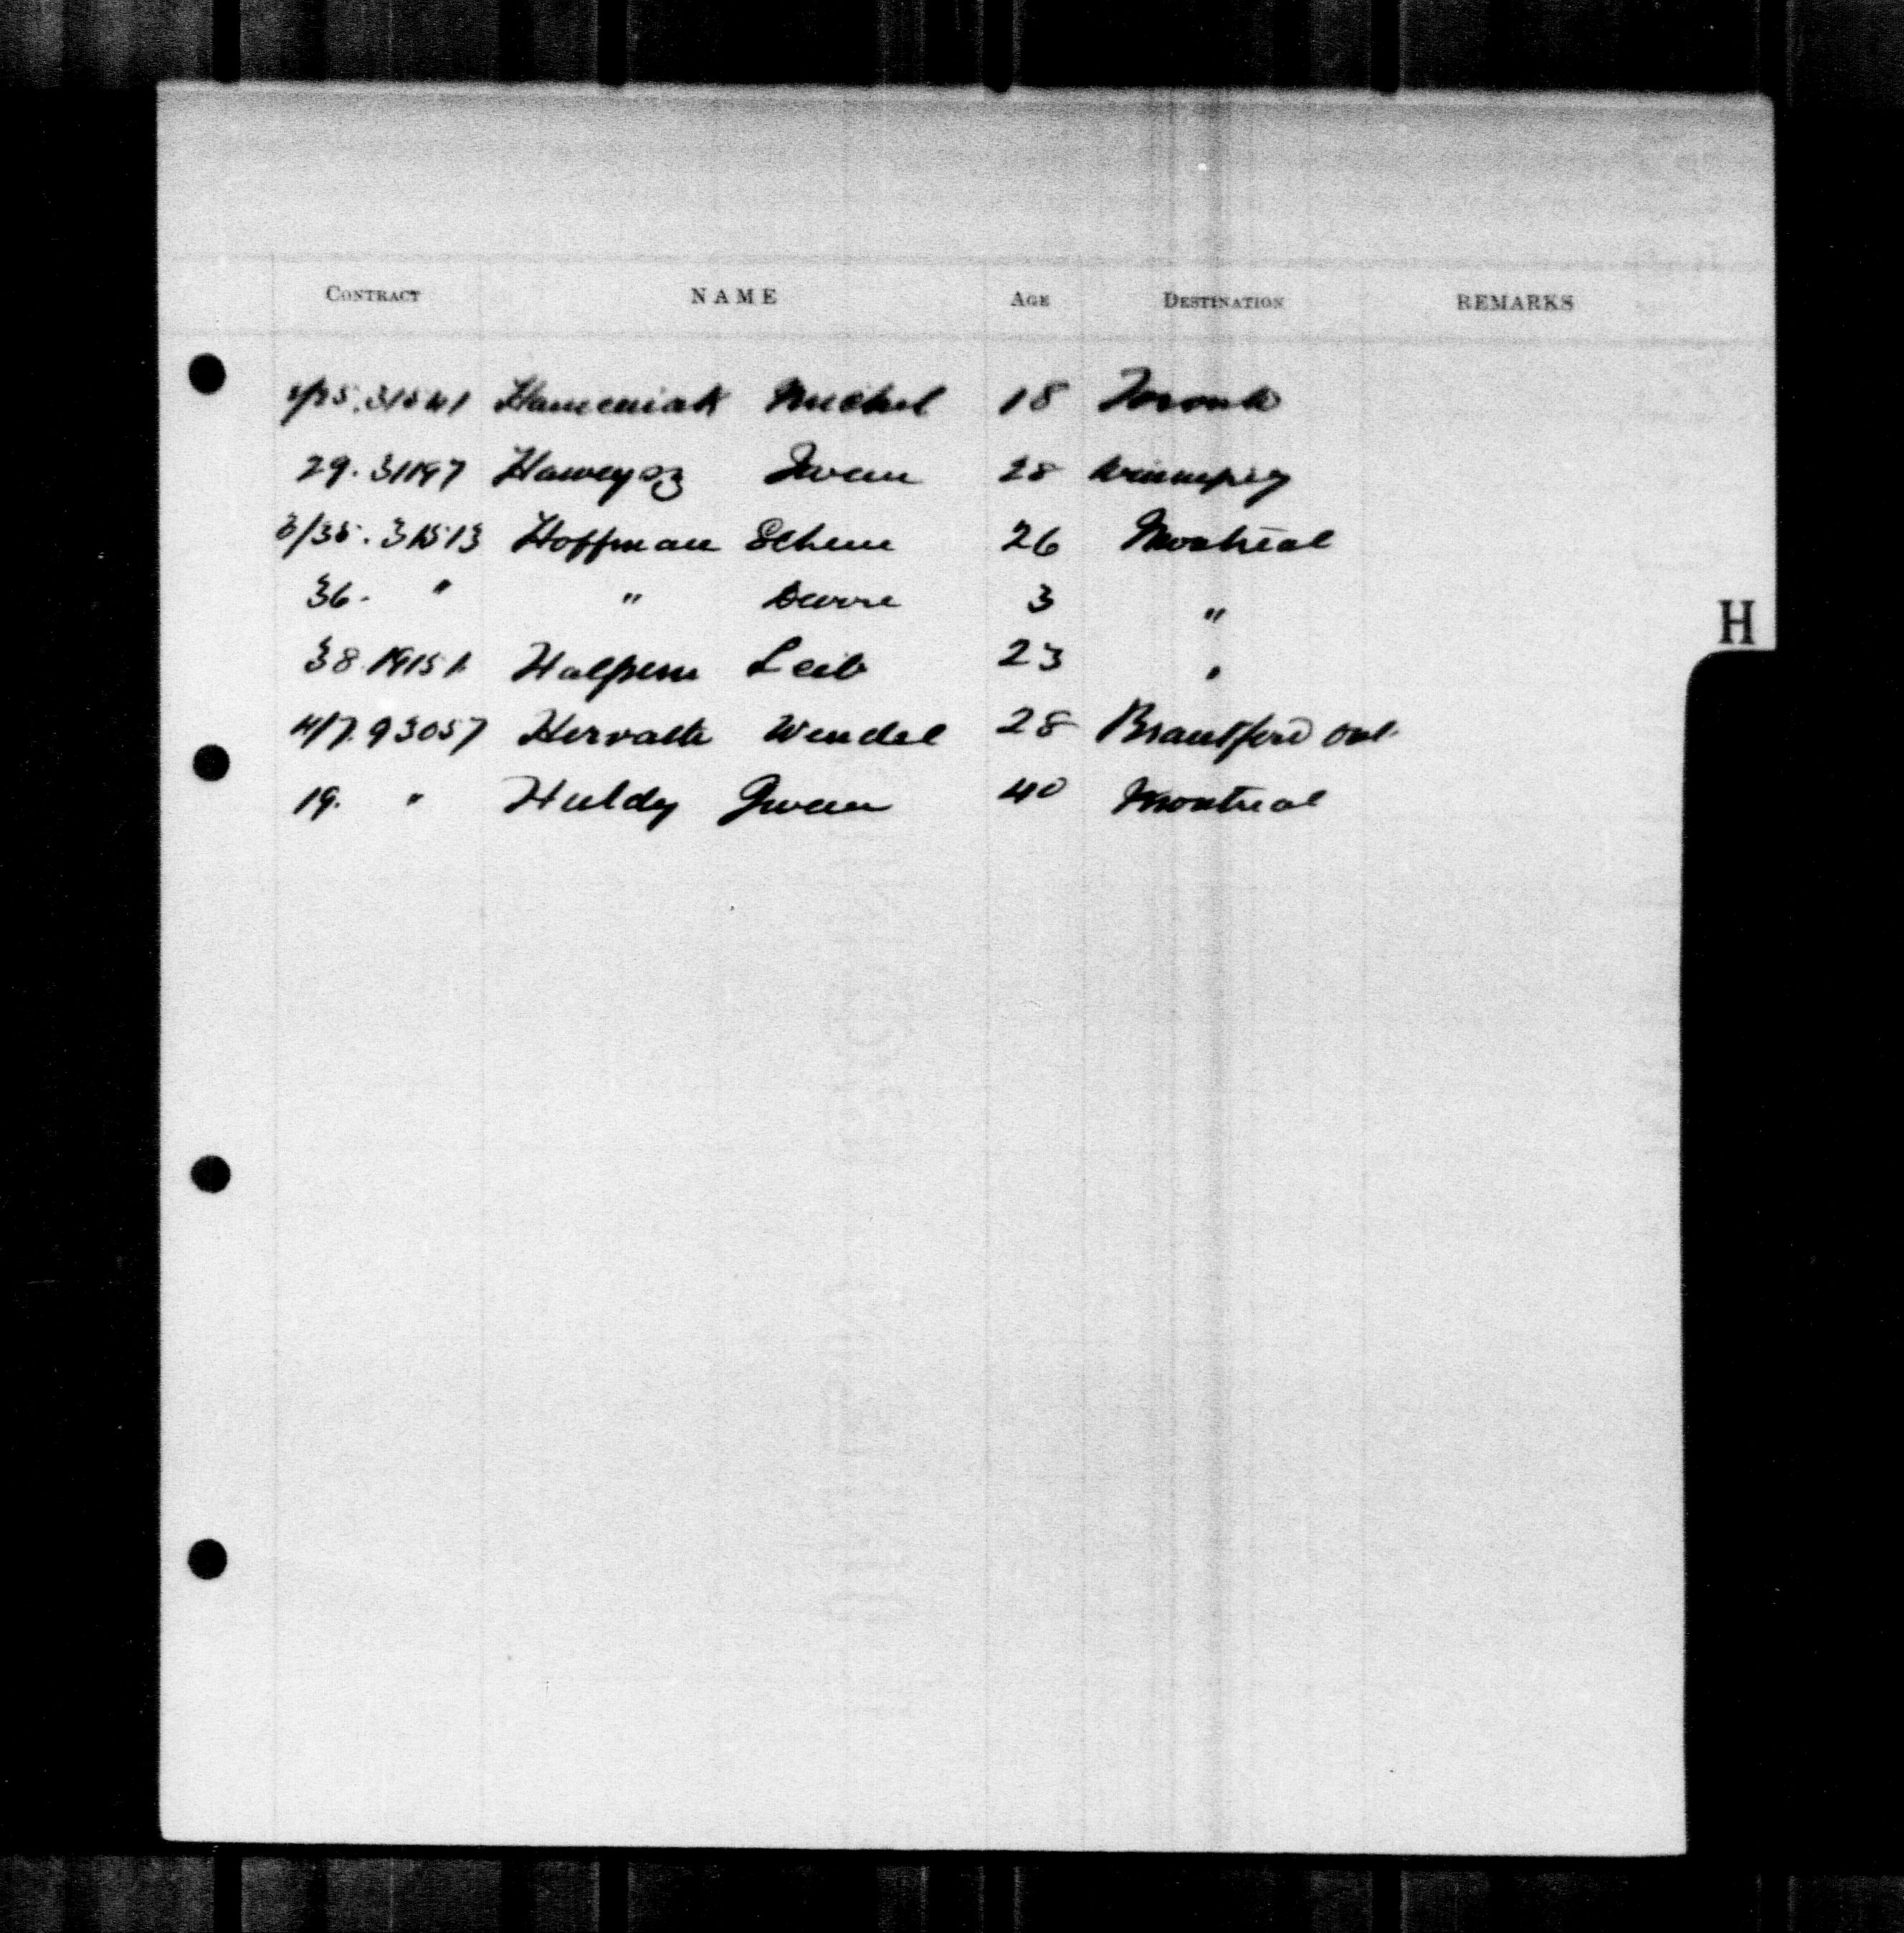 CONTRACT NAME AGE DESTINATION REMARKS
Hameniak Michel 18 Toronto
29. 31197 Haweysz Iwan 28 Winnipeg
3/35. 31513 Hoffman 26 Montreal
36. " " 3 "
H
38. 19151 Halpern Leib 23 "
4/7. 93057 Horvath Wendel 28 Brantford Ont.
19. " Huldy Iwan 40 Montreal